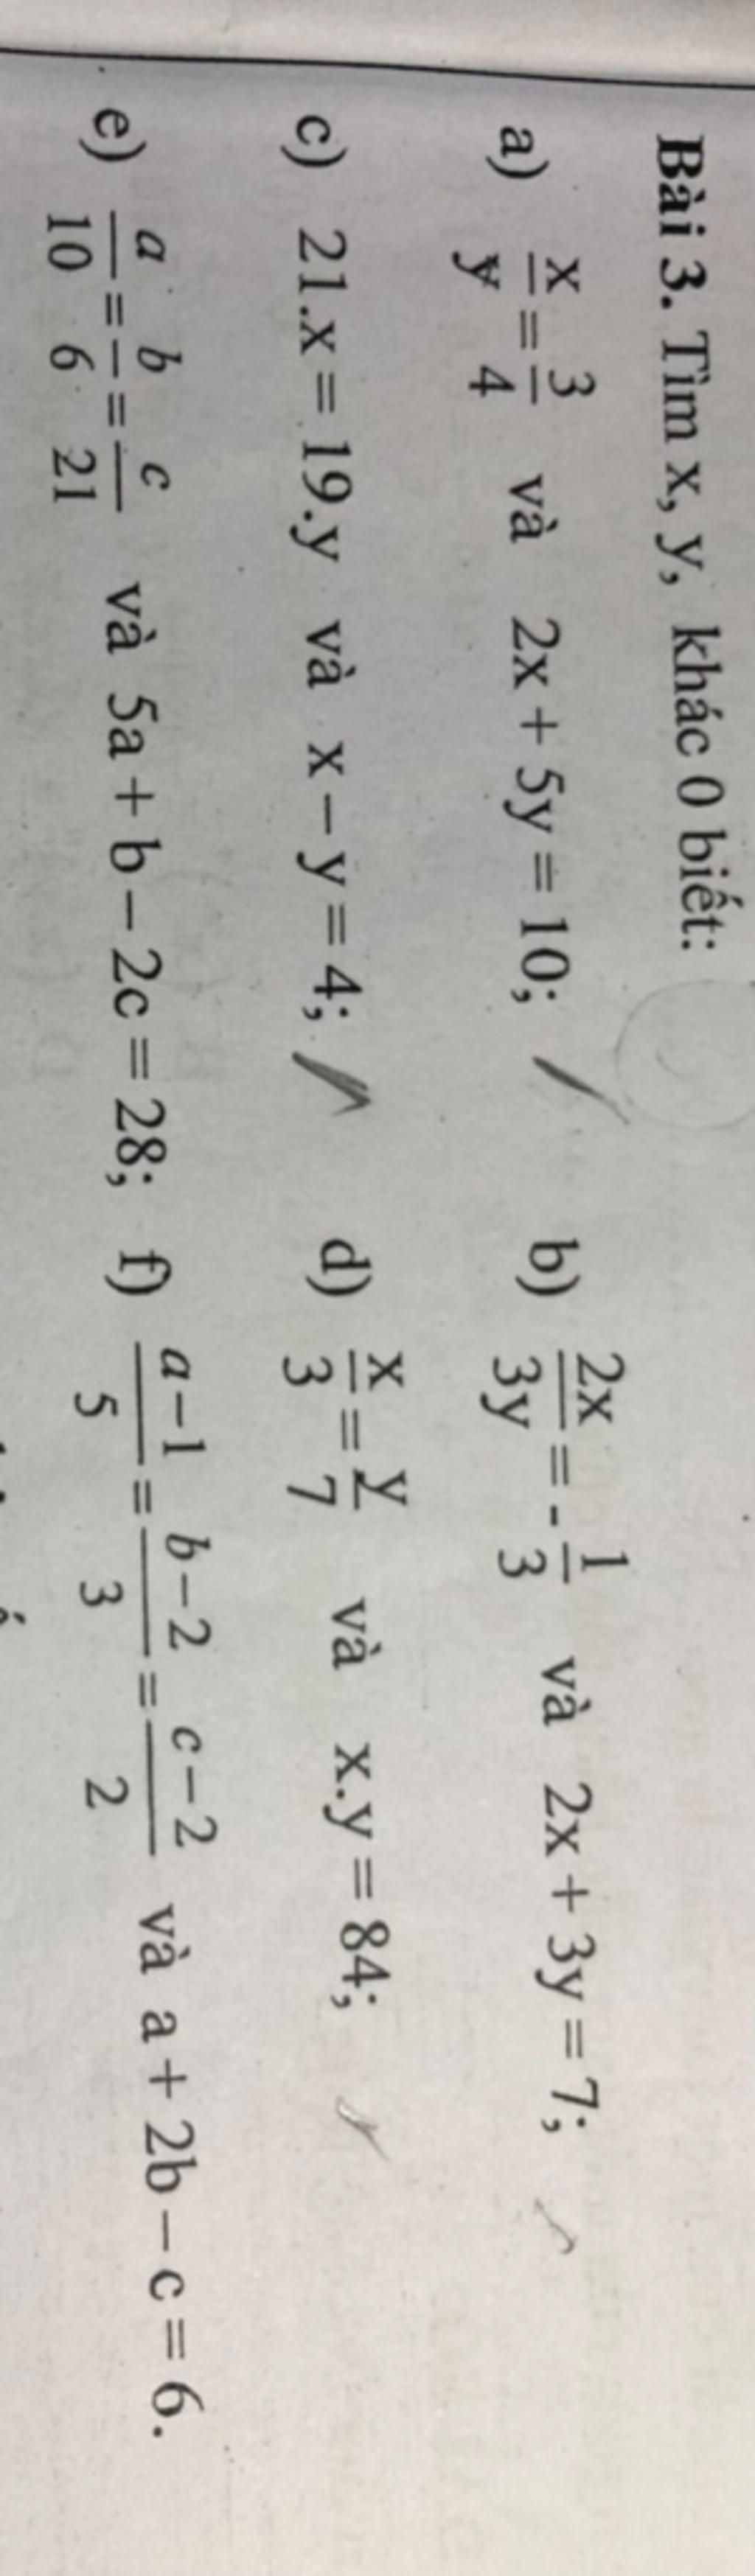 Bài 3. Tìm x, y, khác 0 biết:
a) x/y = 3/4 và 2x + 5y = 10; b) 2x/3y = -1/3 và 2x + 3y = 7;
c) 21.x = 19.y và x – y = 4; d) x/3 = y/7 và x.y = 84;
e) a/10 = b/6 = c/21 và 5a + b – 2c = 28; f) (a–1)/5 = (b–2)/3 = (c–2)/2 và a + 2b – c = 6.